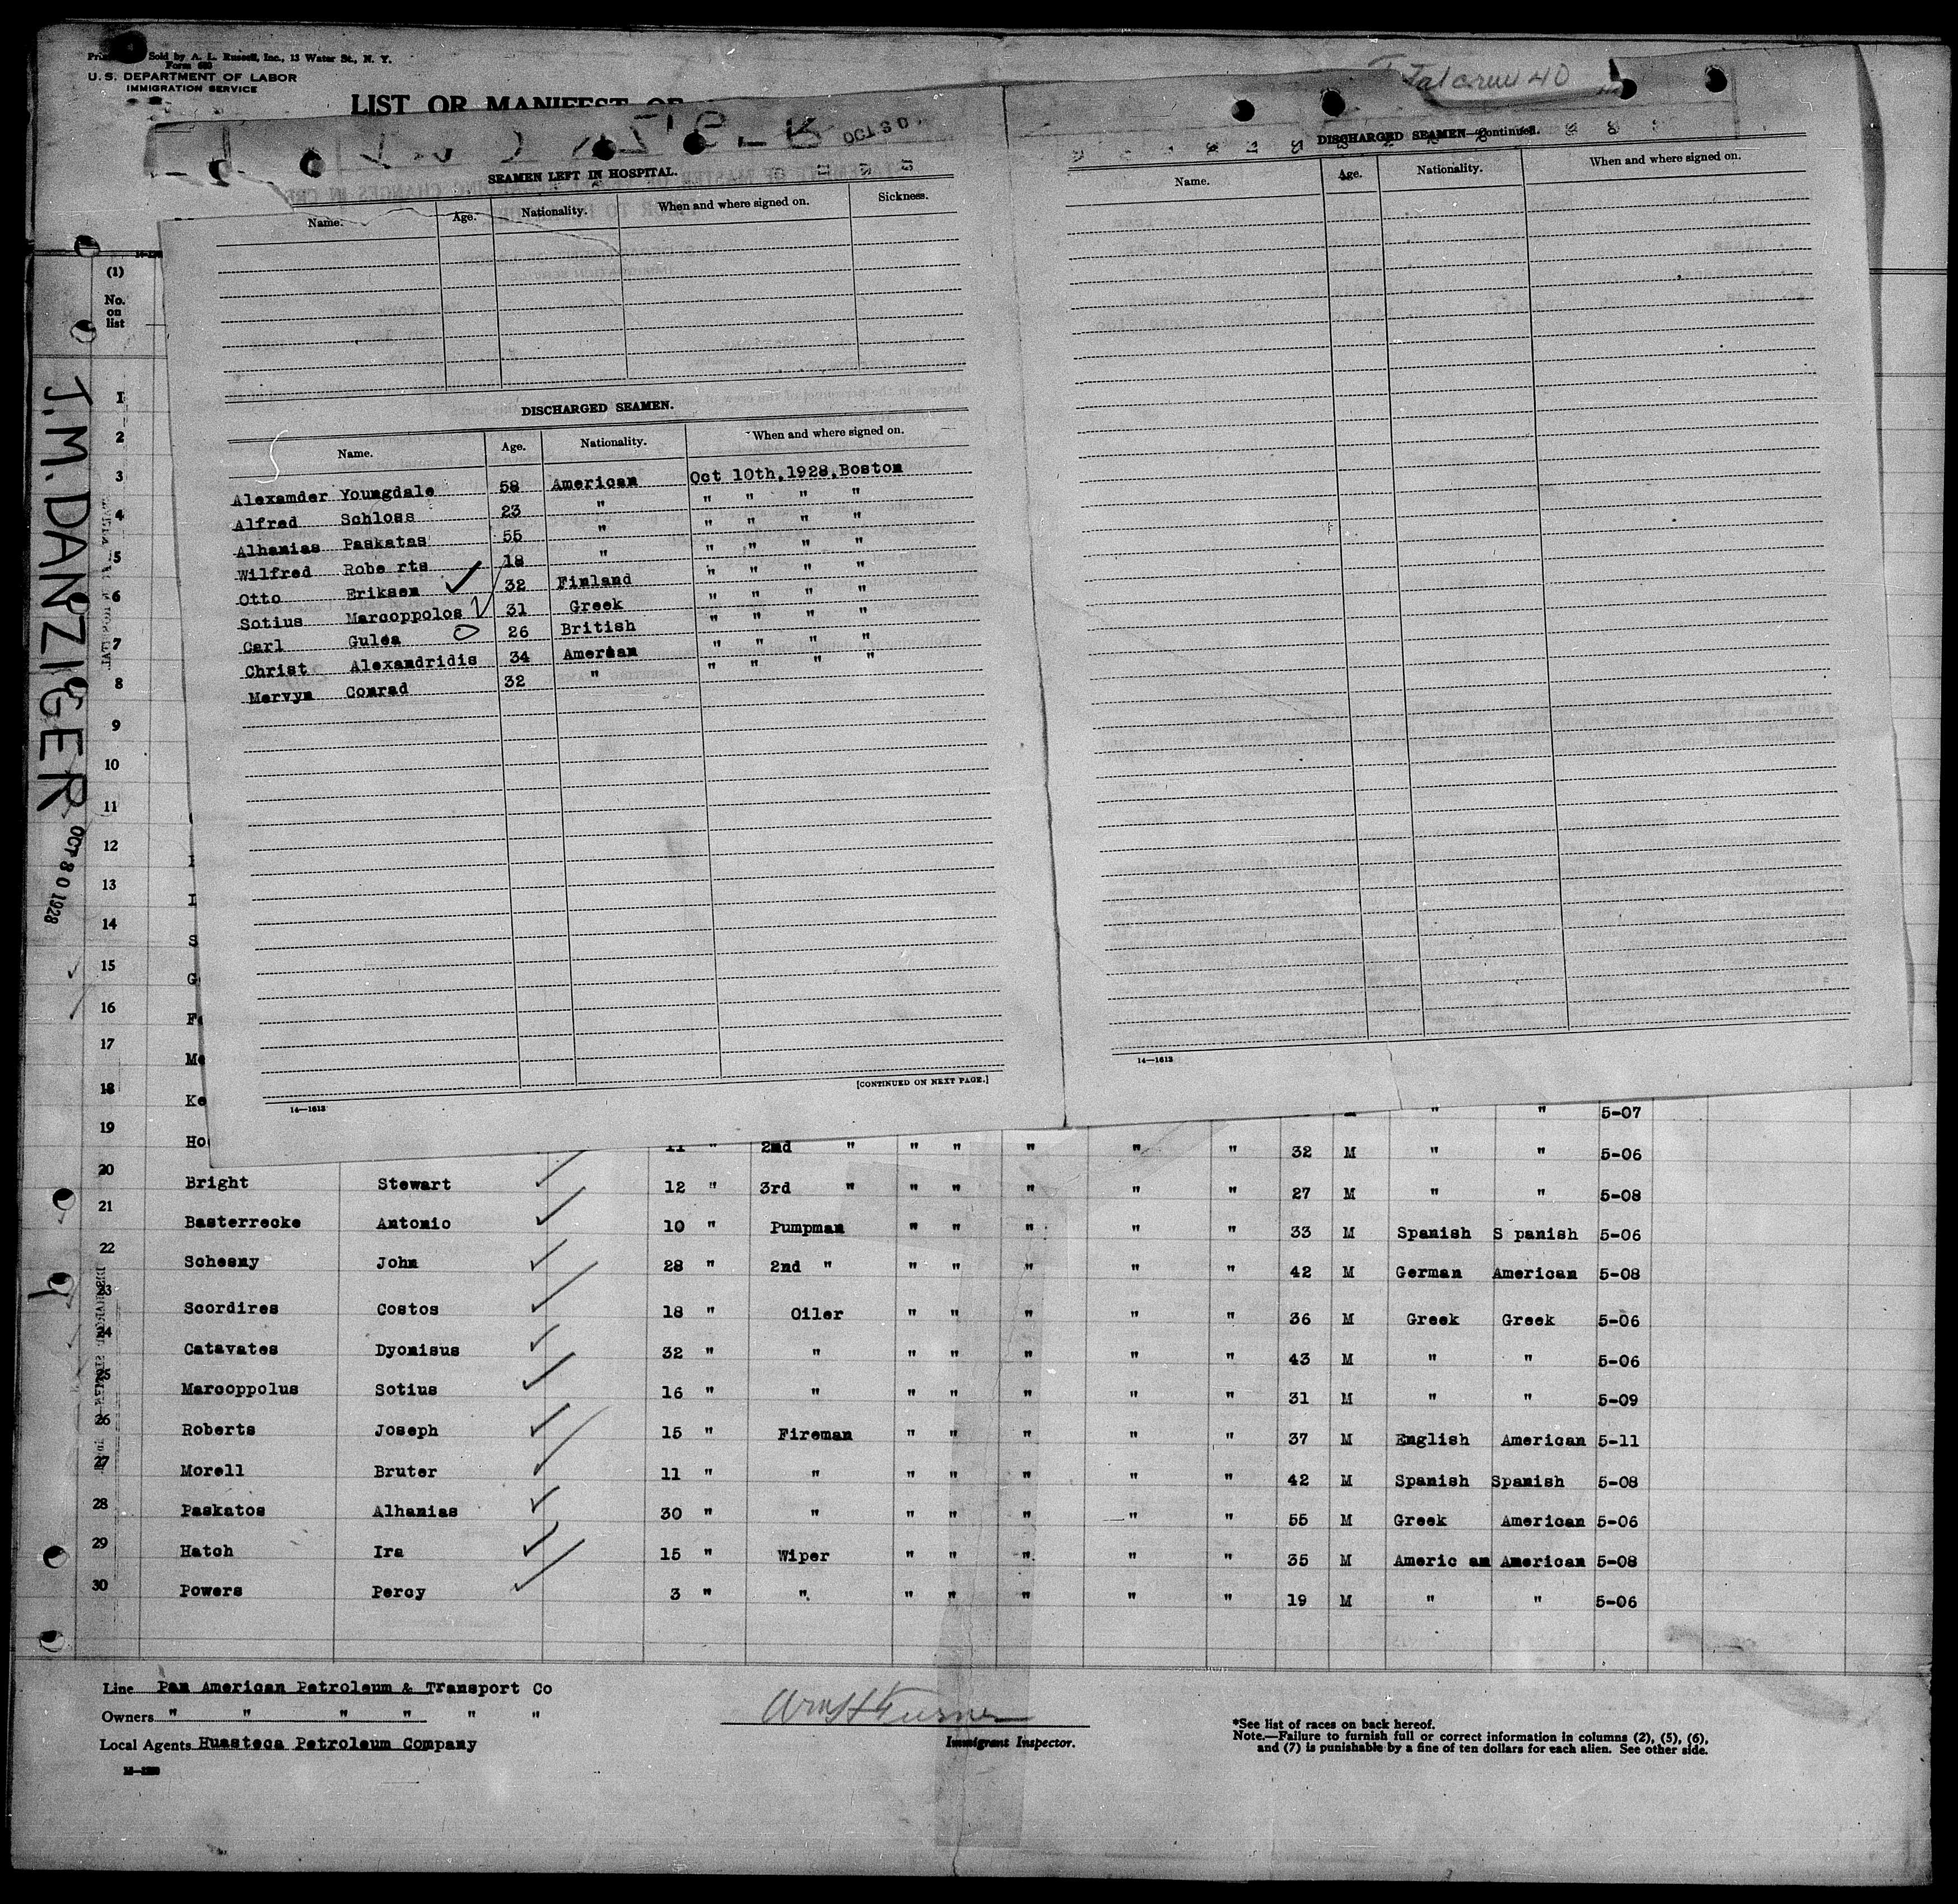 Sold by A. L. Russell, Inc., 13 Water St., N. Y.
Form 680
U. S. DEPARTMENT OF LABOR
IMMIGRATION SERVICE
LIST OR MANIFEST OF
Total crew 40
OCT 30
J. M. DANZIGER
OCT 30 1928
(1)
No. on list
SEAMEN LEFT IN HOSPITAL.
Name. Age. Nationality. When and where signed on. Sickness.
DISCHARGED SEAMEN.
Name. Age. Nationality. When and where signed on.
Alexander Youngdale 58 American Oct 10th,1928,Boston
Alfred Schloss 23 " " " " "
Alhanias Paskatas 55 " " " " "
Wilfred Robe rts 18 " " " " "
Otto Eriksen 32 Finland " " " "
Sotius Marcoppolos 31 Greek " " " "
Carl Gulea 26 British " " " "
Christ Alexandridis 34 Amercan " " " "
Mervyn Conrad 32 " " " " "
[CONTINUED ON NEXT PAGE.]
14—1613
DISCHARGED SEAMEN—Continued.
Name. Age. Nationality. When and where signed on.
14—1613
1
2
3
4
5
6
7
8
9
10
11
12
13
14
15
16
17
18 Ke " " 5-07
19 Ho 11 " 2nd " " " " " " 32 M " " 5-06
20 Bright Stewart 12 " 3rd " " " " " " 27 M " " 5-08
21 Basterrecke Antonio 10 " Pumpman " " " " " 33 M Spanish S panish 5-06
22 Schesny John 28 " 2nd " " " " " " 42 M German American 5-08
23 Scordires Costos 18 " Oiler " " " " " 36 M Greek Greek 5-06
24 Catavates Dyonisus 32 " " " " " " " 43 M " " 5-06
25 Marcoppolus Sotius 16 " " " " " " " 31 M " " 5-09
26 Roberts Joseph 15 " Fireman " " " " " 37 M English American 5-11
27 Morell Bruter 11 " " " " " " " 42 M Spanish Spanish 5-08
28 Paskatos Alhanias 30 " " " " " " " 55 M Greek American 5-06
29 Hatch Ira 15 " Wiper " " " " " 35 M Americ an American 5-08
30 Powers Percy 3 " " " " " " " 19 M " " 5-06
Line Pan American Petroleum & Transport Co
Owners " " " " " "
Local Agents Huasteca Petroleum Company
Immigrant Inspector.
*See list of races on back hereof.
Note.—Failure to furnish full or correct information in columns (2), (5), (6),
and (7) is punishable by a fine of ten dollars for each alien. See other side.